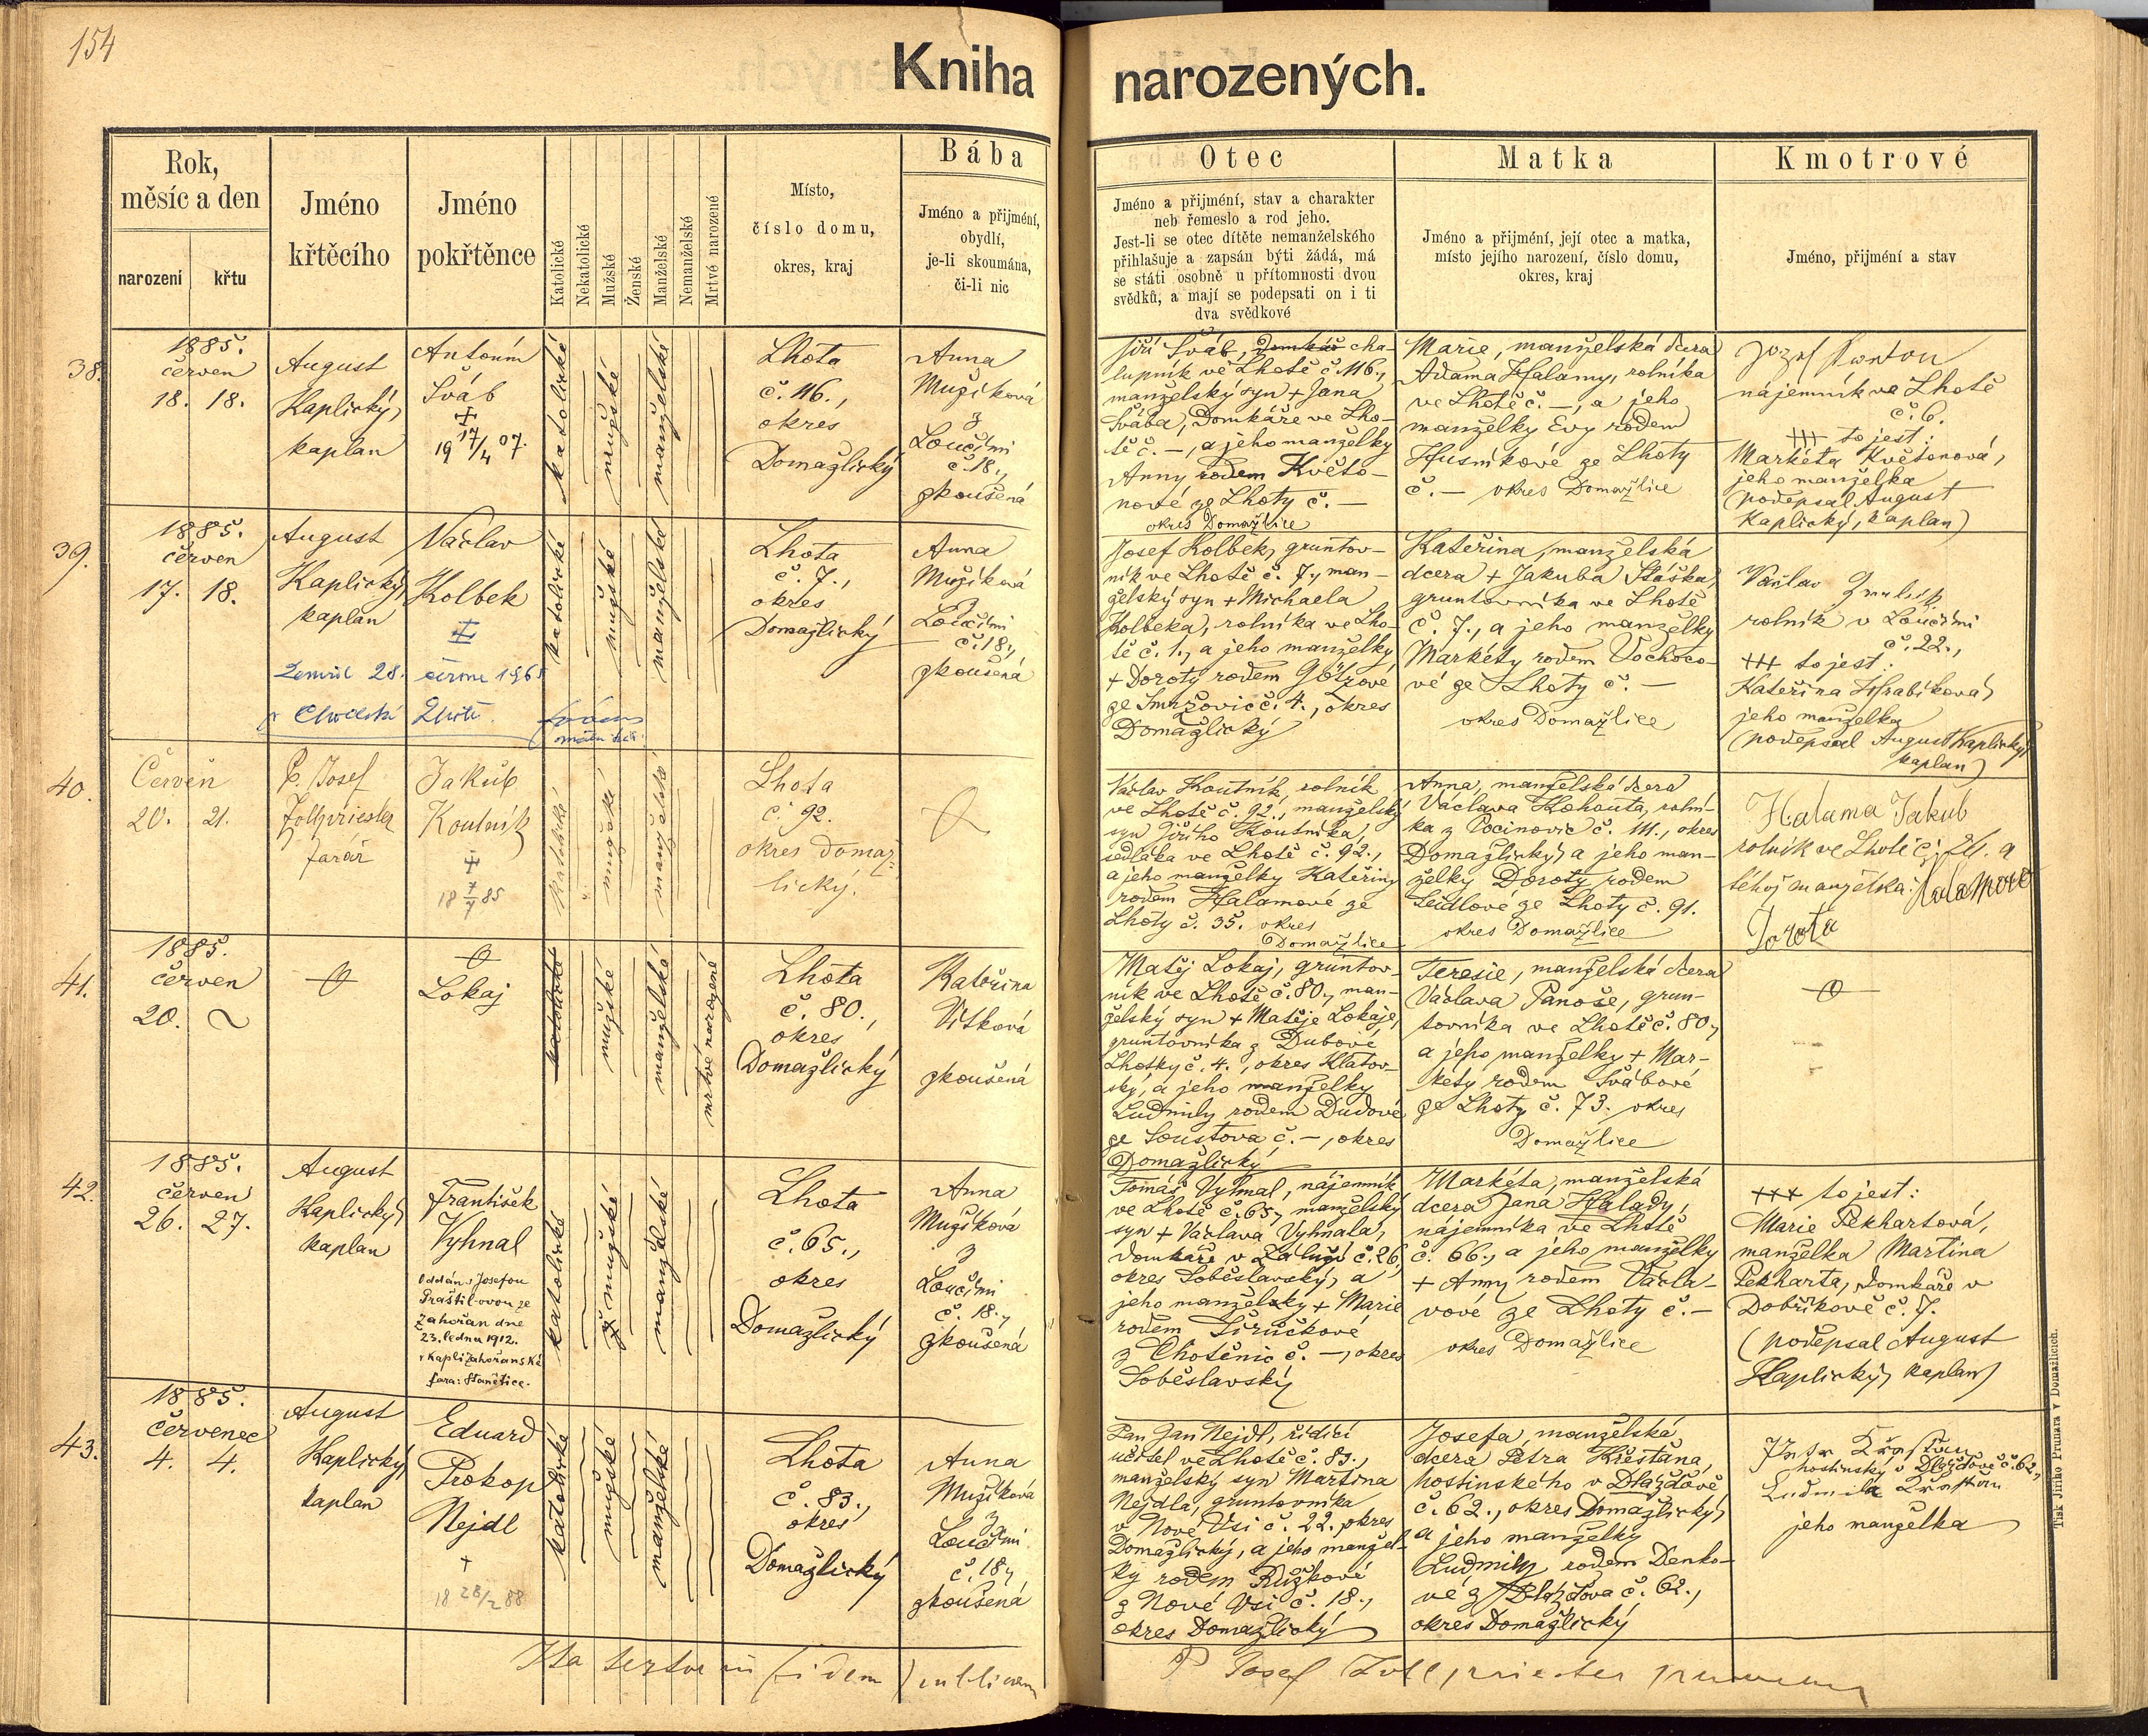 154
Kniha narozených.
Rok,
měsíc a den
narození
křtu
Jméno
křtěcího
Jméno
pokřtěnce
Katolické
Nekatolické
Mužské
Ženské
Manželské
Nemanželské
Mrtvě narozené
Místo,
číslo domu,
okres, kraj
Bába
Jméno a přijmení,
obydlí,
je-li skoumána,
či-li nic
Otec
Jméno a přijmení, stav a charakter
neb řemeslo a rod jeho.
Jest-li se otec dítěte nemanželského
přihlašuje a zapsán býti žádá, má
se státi osobně u přítomnosti dvou
svědků, a mají se podepsati on i ti
dva svědkové
Matka
Jméno a přijmení, její otec a matka,
místo jejího narození, číslo domu,
okres, kraj
Kmotrové
Jméno, přijmení a stav
38.
1885.
červen
18. 18.
August
Kaplický,
kaplan
Antonín
Šváb
19 17/4 07.
katolické
mužské
manželské
Lhota
č. 116.,
okres
Domažlický
Anna
Mužíková
z
Loučimi
č. 18.,
zkoušená
Jiří Šváb, domkář cha-
lupník ve Lhotě č. 116.,
manželský syn + Jana
Švába, domkáře ve Lho-
tě č. –, a jeho manželky
Anny rodem Květo-
nové ze Lhoty č. –
okres Domažlice
Marie, manželská dcera
Adama Halamy, rolníka
ve Lhotě č. –, a jeho
manželky Evy rodem
Husníkové ze Lhoty
č. – okres Domažlice
Jozef
nájemník ve Lhotě
č. 6.
+++ to jest:
Markéta Květonová,
jeho manželka
(podepsal August
Kaplický, kaplan)
39.
1885.
červen
17. 18.
August
Kaplický,
kaplan
Václav
Kolbek
Zemřel 28. června 1965
v Lhotě
katolické
mužské
manželské
Lhota
č. 7.,
okres
Domažlický
Anna
Mužíková
z
Loučimi
č. 18.,
zkoušená
Josef Kolbek, gruntov-
ník ve Lhotě č. 7., man-
želský syn + Michaela
Kolbeka, rolníka ve Lho-
tě č. 1., a jeho manželky
+ Doroty rodem Götzove
ze Smržovic č. 4., okres
Domažlický
Kateřina, manželská
dcera + Jakuba Sláška,
gruntovníka ve Lhotě
č. 7., a jeho manželky
Markéty rodem Vochoco-
vé ze Lhoty č. –
okres Domažlice
Václav
rolník v Loučimi
č. 22.,
+++ to jest:
Kateřina Hrabíková,
jeho manželka
(podepsal August Kaplický,
kaplan)
40.
Červen
20. 21.
P. Josef
Zollpriester
farář
Jakub
Koutník
18 7/7 85
katolické
mužské
manželské
Lhota
č. 92.
okres Domaž-
lický.
Václav Koutník, rolník
ve Lhotě č. 92., manželský
syn Jiřího Koutníka,
sedláka ve Lhotě č. 92.,
a jeho manželky Kateřiny
rodem Halamové ze
Lhoty č. 35. okres
Domažlice
Anna, manželská dcera
Václava Kohouta, rolní-
ka z Pocinovic č. 111., okres
Domažlický, a jeho man-
želky Doroty rodem
Seidlove ze Lhoty č. 91.
okres Domažlice
Halama Jakub
rolník ve Lhotě č. 24. a
téhož manželka: Halamova
Dorota
41.
1885.
červen
20. ~
Lokaj
katolické
mužské
manželské
mrtvě narozené
Lhota
č. 80.,
okres
Domažlický
Kateřina
Vítková
zkoušená
Matěj Lokaj, gruntov-
ník ve Lhotě č. 80., man-
želský syn + Matěje Lokaje,
gruntovníka z Dubové
Lhotky č. 4., okres Klatov-
ský, a jeho manželky
Ludmily rodem Dudové
ze Soustova č. –, okres
Domažlický
Teresie, manželská dcera
Václava Panoše, grun-
tovníka ve Lhotě č. 80.,
a jeho manželky + Mar-
kéty rodem Švábové
ze Lhoty č. 73. okres
Domažlice
42.
1885.
červen
26. 27.
August
Kaplický,
kaplan
František
Vyhnal
Oddán s Josefou
Praštil-ovou ze
Zahořan dne
23. ledna 1912.
v kapli zahořanské
fara: Stanětice.
katolické
mužské
manželské
Lhota
č. 65.,
okres
Domažlický
Anna
Mužíková
z
Loučimi
č. 18.,
zkoušená
Tomáš Vyhnal, nájemník
ve Lhotě č. 65., manželský
syn + Václava Vyhnala,
domkáře v Záluží č. 26,
okres Soběslavský, a
jeho manželky + Marie
rodem Širůčkové
z Chotěnic č. –, okres
Soběslavský
Markéta, manželská
dcera Jana Halady,
nájemníka ve Lhotě
č. 66., a jeho manželky
+ Anny rodem Václa-
vové ze Lhoty č. –
okres Domažlice
+++ to jest:
Marie Pekhartová,
manželka Martina
Pekharta, domkáře v
Dobříkově č. 7.
(podepsal August
Kaplický, kaplan)
43.
1885.
červenec
4. 4.
August
Kaplický,
kaplan
Eduard
Prokop
Nejdl
†
18 28/2 88
katolické
mužské
manželské
Lhota
č. 83.,
okres
Domažlický
Anna
Mužíková
z
Loučimi
č. 18.,
zkoušená
Pan Jan Nejdl, řídící
učitel ve Lhotě č. 83.,
manželský syn Martina
Nejdla, gruntovníka
v Nové Vsi č. 22. okres
Domažlický, a jeho manžel-
ky rodem Růžkové
z Nové Vsi č. 18.,
okres Domažlický
Josefa, manželská
dcera Petra Křesťana,
hostinského v Dlažďově
č. 62., okres Domažlický,
a jeho manželky
Ludmily rodem Denko-
vé z Dlažďova č. 62.,
okres Domažlický
Petr Křesťan
hostinský v Dlažďově č. 62.,
Ludmila Křesťan
jeho manželka
Ita testor in fidem publicam
P Josef Zollpriester
Tisk Jiřího Prunara v Domažlicích.